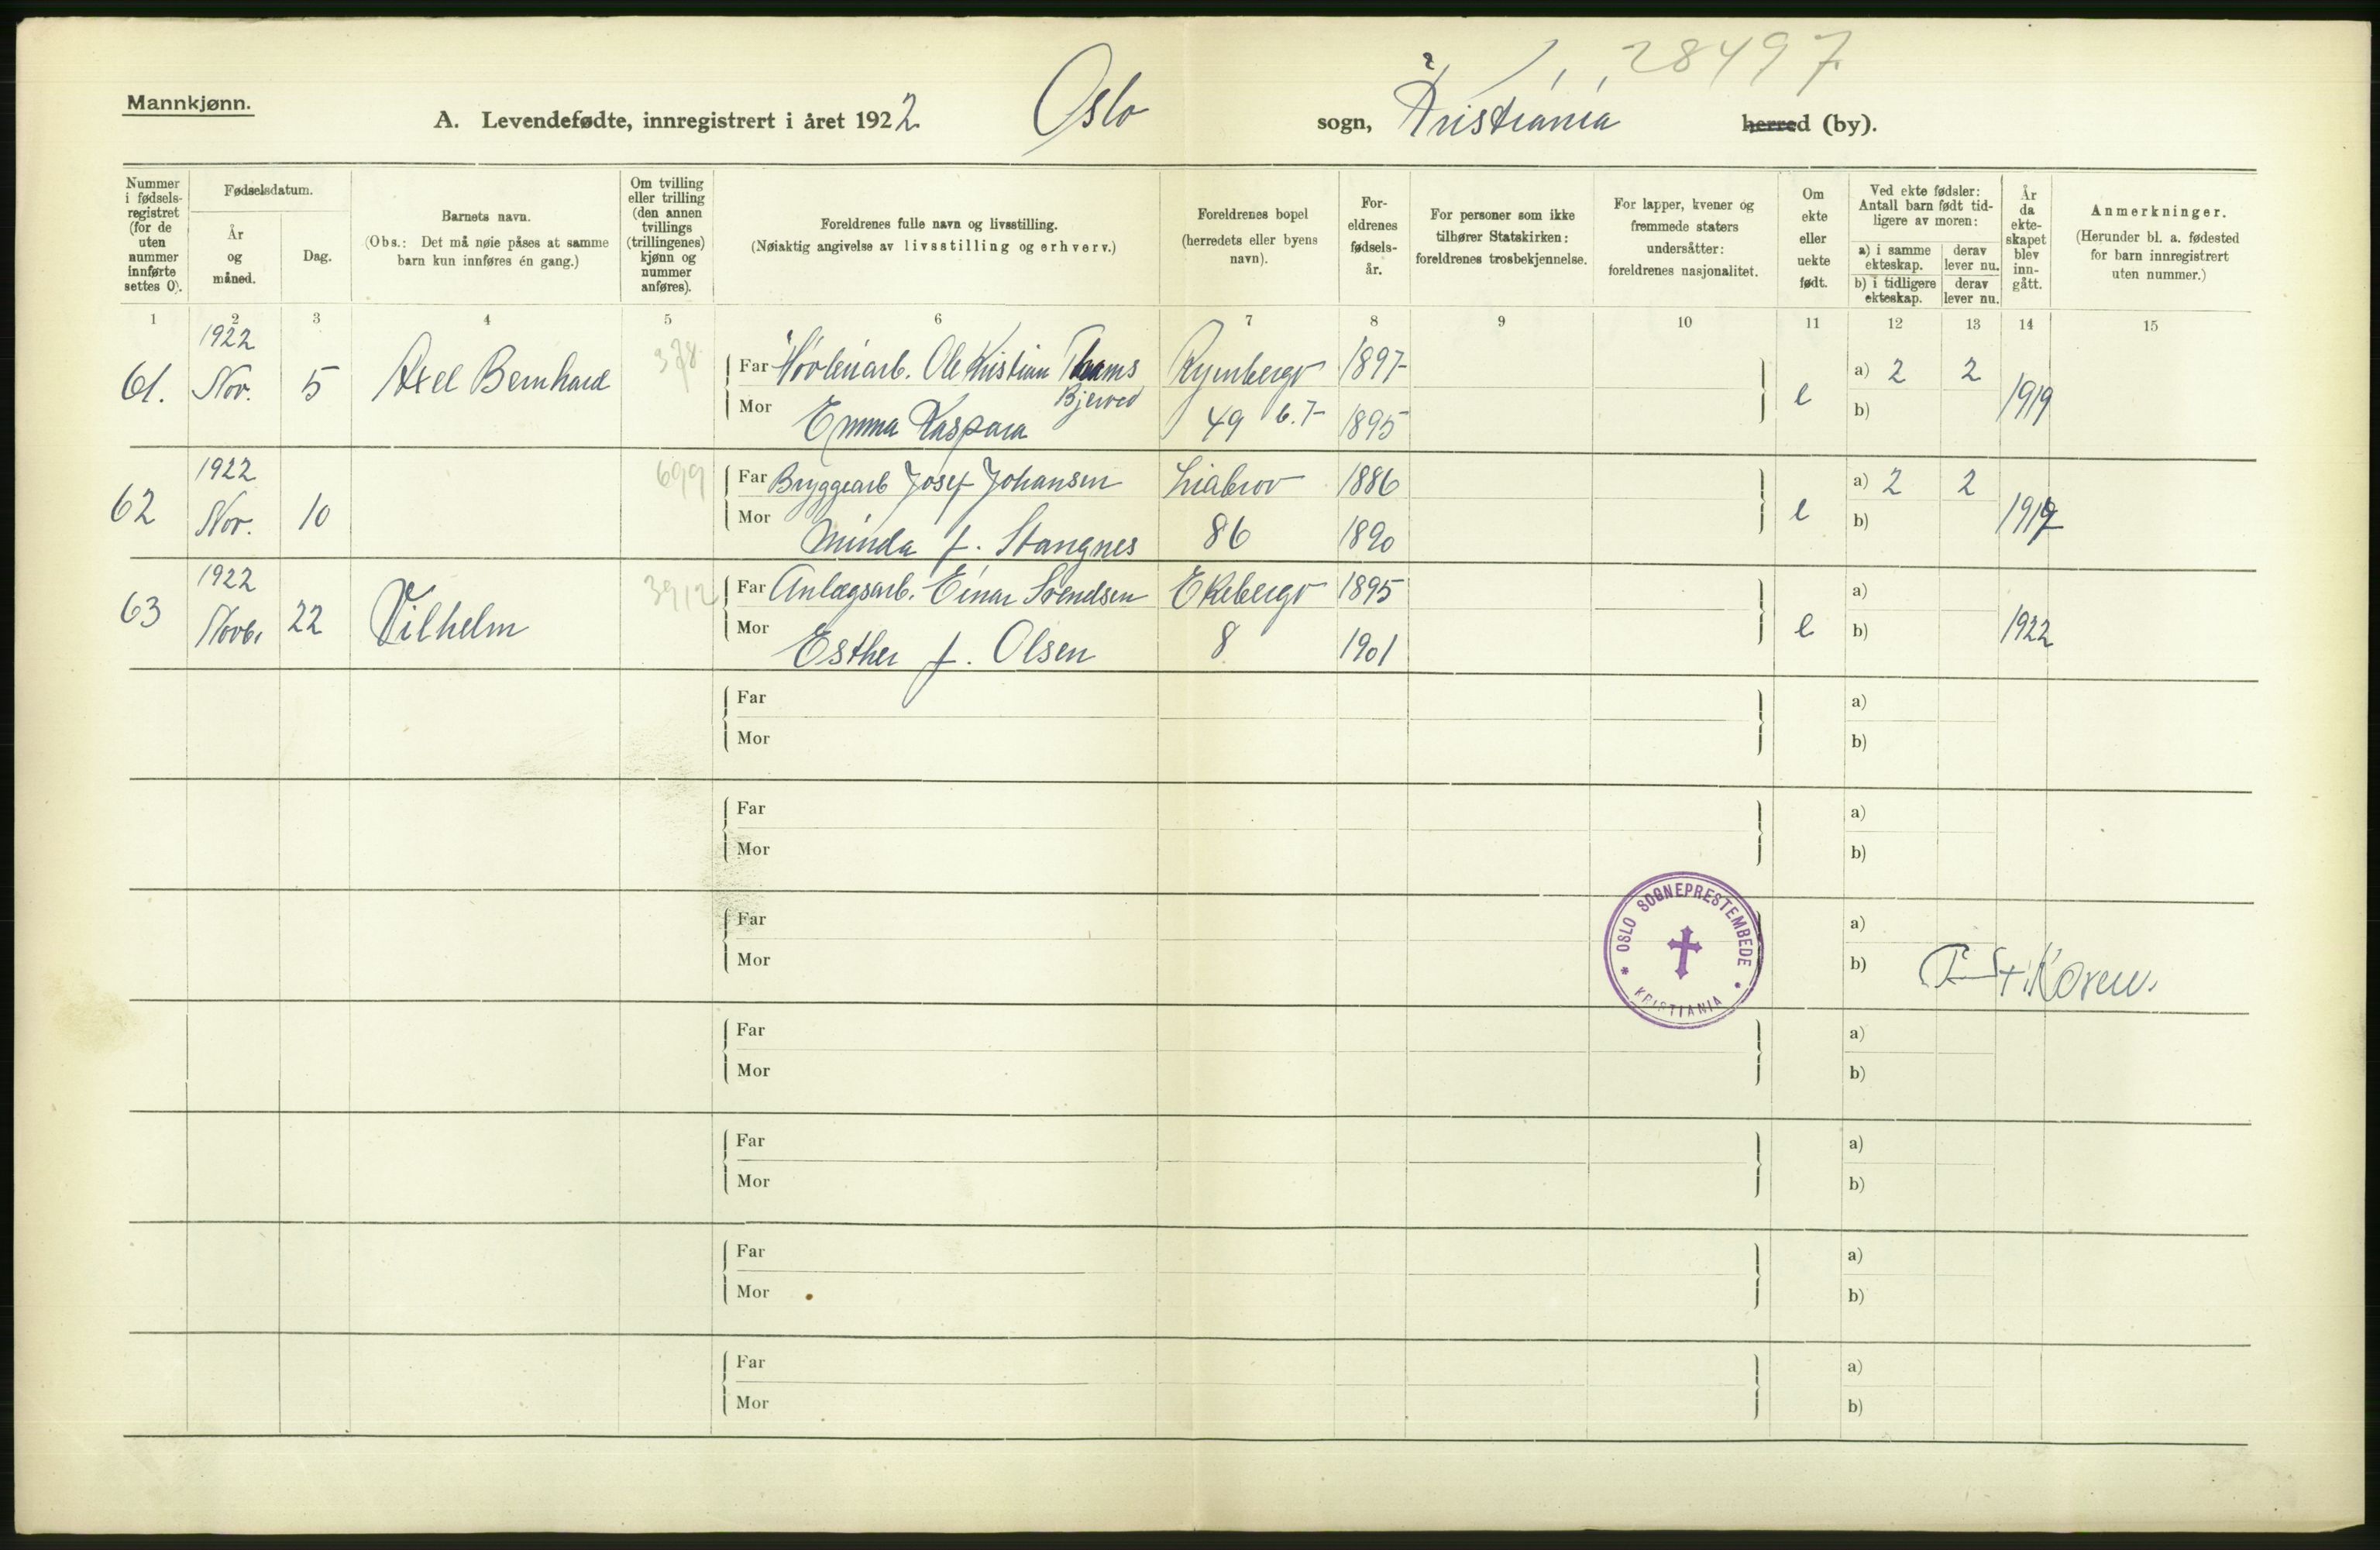 28497
Mannkjønn.
A. Levendefødte, innregistrert i året 1922 Oslo sogn, Kristiania herred (by).
Nummer i fødsels-registret (for de uten nummer innførte settes 0).
Fødselsdatum.
År og måned.
Dag.
Barnets navn.
(Obs.: Det må nøie påses at samme barn kun innføres én gang.)
Om tvilling eller trilling (den annen tvillings (trillingenes) kjønn og nummer anføres).
Foreldrenes fulle navn og livsstilling.
(Nøiaktig angivelse av livsstilling og erhverv.)
Foreldrenes bopel (herredets eller byens navn).
For-eldrenes fødsels-år.
For personer som ikke tilhører Statskirken: foreldrenes trosbekjennelse.
For lapper, kvener og fremmede staters undersåtter: foreldrenes nasjonalitet.
Om ekte eller uekte født.
Ved ekte fødsler: Antall barn født tid-ligere av moren:
a) i samme ekteskap.
derav lever nu.
b) i tidligere ekteskap.
derav lever nu.
År da ekte-skapet blev inn-gått.
Anmerkninger.
(Herunder bl. a. fødested for barn innregistrert uten nummer.)
1 2 3 4 5 6 7 8 9 10 11 12 13 14 15
61. 1922 Nov. 5 Axel Bernhard 378 Far Ole Kristian Thams 1897 e a) 2 2 1919
Mor Emma Kaspara Bjerved 49 6.7 1895 b)
62 1922 Nov. 10 699 Far Bryggearb Josef Johansen Liabrov 1886 e a) 2 2
Mor Minda f. Stangnes 86 1890 b)
63 1922 Novb. 22 Vilhelm 3912 Far Anlægsarb. Einar Svendsen Ekebergv 1895 e a) 1922
Mor Esther f. Olsen 8 1901 b)
Far a)
Mor b)
Far a)
Mor b)
Far a)
Mor b)
OSLO SOGNEPRESTEMBEDE
KRISTIANIA
Far a)
Mor b)
Far a)
Mor b)
Far a)
Mor b)
Far a)
Mor b)